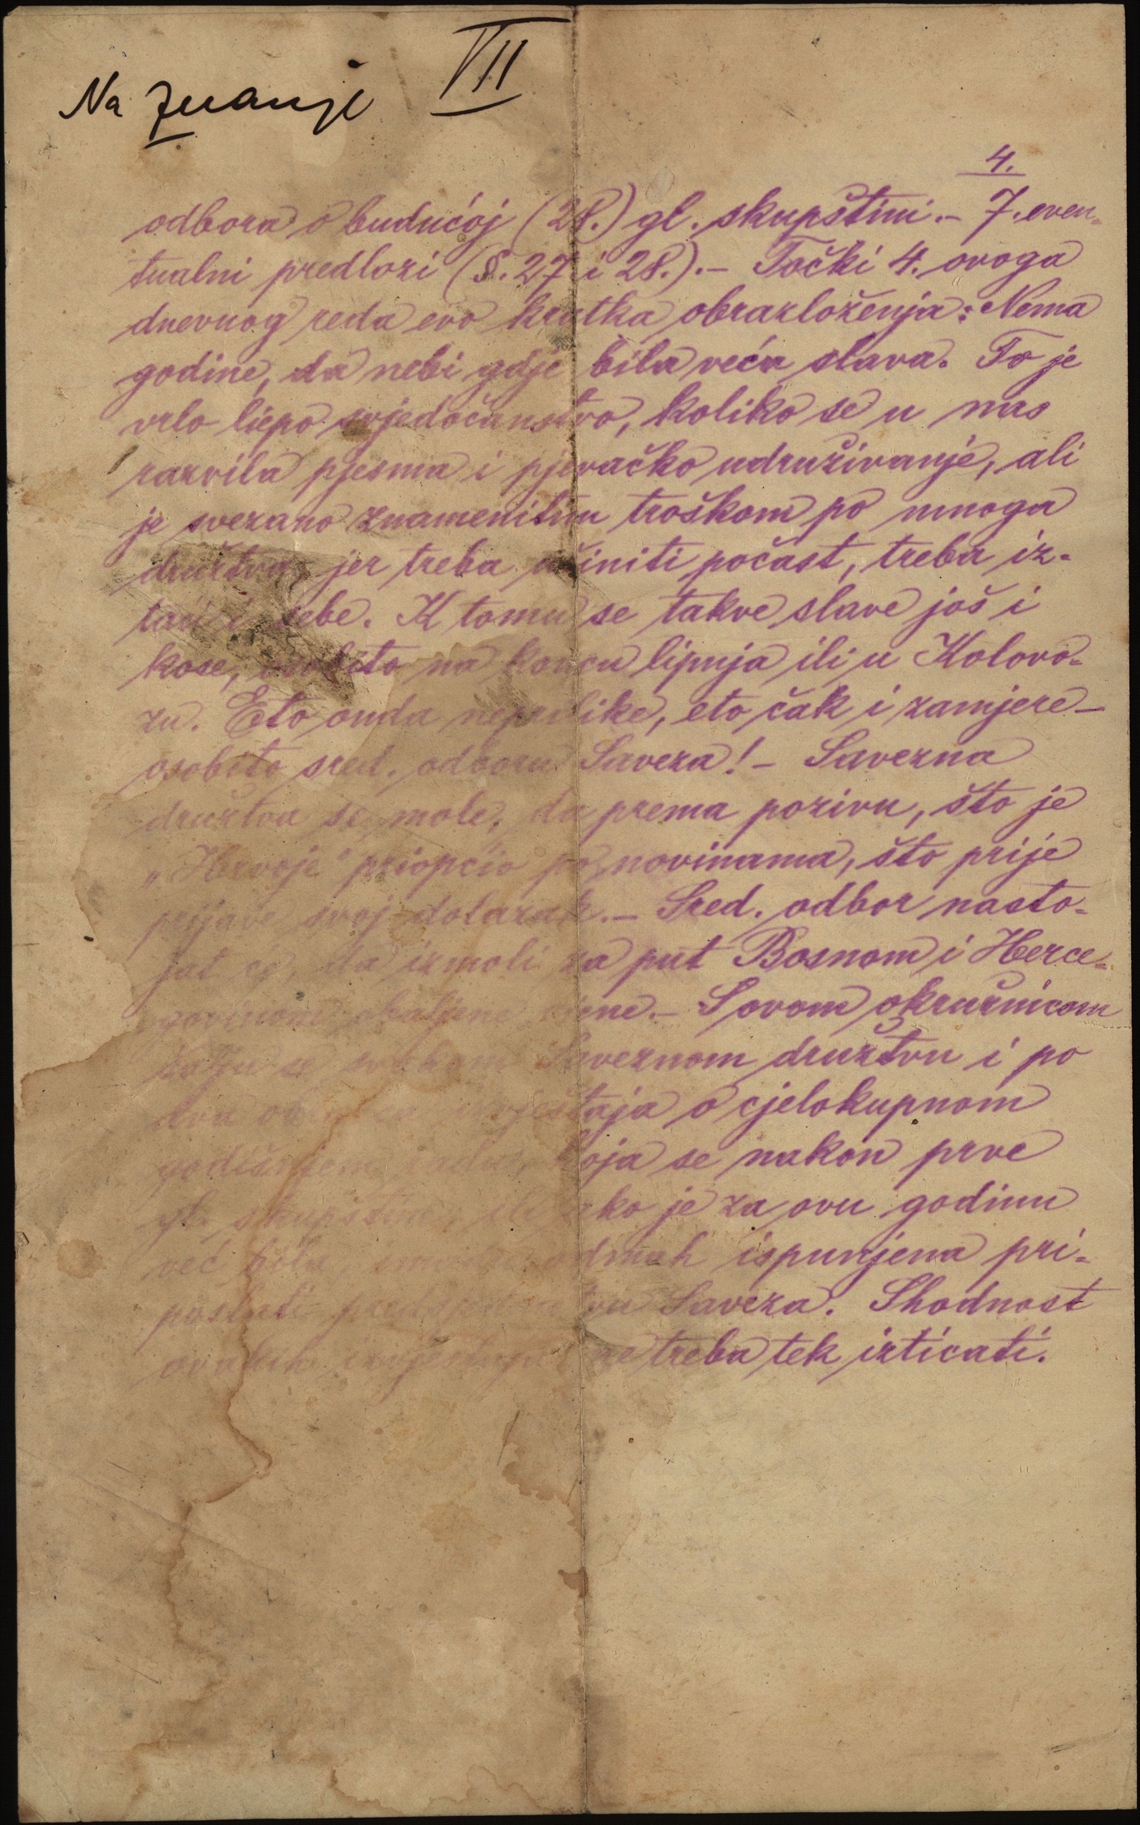 Na znanje VII
4.
odbora o budućoj (28.) gl. skupštini. – 7. even-
tualni predlozi (§. 27 i 28.). – Točki 4. ovoga
dnevnog reda evo kratka obrazloženja: Nema
godine, da nebi gdje bila veća slava. To je
vrlo liepo svjedočanstvo, koliko se u nas
razvila pjesma i pjevačko udruživanje, ali
je svezano znamenitim troškom po mnoga
društva, jer treba učiniti počast, treba iz-
taći i sebe. K tomu se takve slave još i
kose, osobito na koncu lipnja ili u Kolovo-
zu. Eto onda neprilike, eto čak i zamjere –
osobito sred. odboru Saveza! – Savezna
društva se mole, da prema pozivu, što je
„Hrvoje" priopćio po novinama, što prije
prijave svoj dolazak. – Sred. odbor nasto-
jat će, da izmoli za put Bosnom i Herce-
govinom cijene. – S ovom okružnicom
šalju se svakom Saveznom društvu i po
dva o cjelokupnom
godišnjem radu, koja se nakon prve
gl. skupštine, je za ovu godinu
već bila odmah ispunjena pri-
poslati Saveza. Shodnost
ovakih ne treba tek izticati.